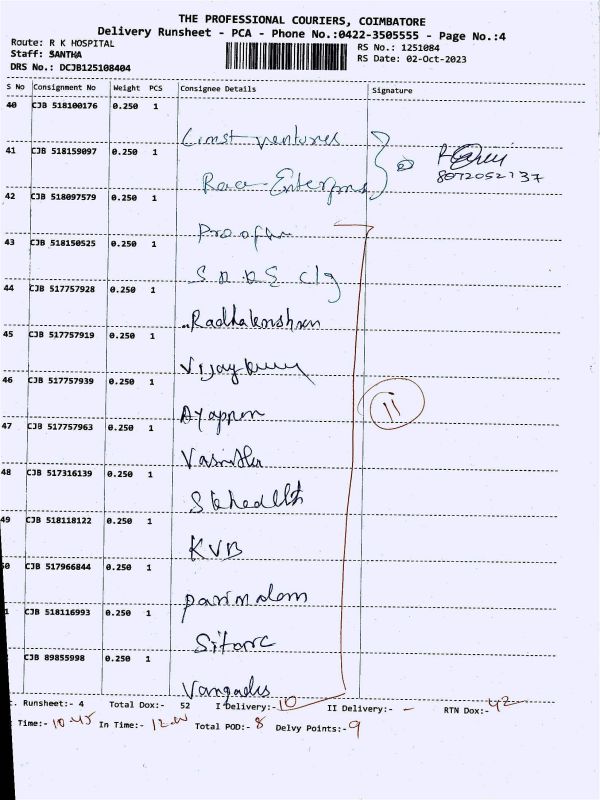 THE PROFESSIONAL COURIERS, COIMBATORE
Delivery Runsheet - PCA - Phone No.:0422-3505555 - Page No.:4
Route: R K HOSPITAL RS No.: 1251084
Staff: SANTHA RS Date: 02-Oct-2023
DRS No.: DCJB125108404
S No Consignment No Weight PCS Consignee Details Signature
40 CJB 518100176 0.250 1
ventures
41 CJB 518159097 0.250 1
Race Enterprises 8072052137
42 CJB 518097579 0.250 1
43 CJB 518150525 0.250 1
44 CJB 517757928 0.250 1
Radhakrishnan
45 CJB 517757919 0.250 1
Vijaykumar
46 CJB 517757939 0.250 1
Ayappan
11
47 CJB 517757963 0.250 1
48 CJB 517316139 0.250 1
49 CJB 518118122 0.250 1
KVB
0 CJB 517966844 0.250 1
1 CJB 518116993 0.250 1
CJB 89855998 0.250 1
. Runsheet:- 4 Total Dox:- 52 I Delivery:- 10 II Delivery:- - RTN Dox:- 42
Time:- 10.45 In Time:- Total POD:- 8 Delvy Points:- 9